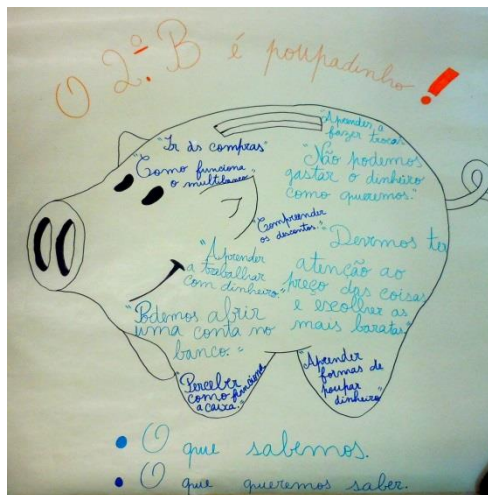 O 2.º B é poupadinho!
"Ir às compras"
"Como funciona
o multibanco."
"Aprender a
fazer trocas
"Não podemos
gastar o dinheiro
como queremos."
"Compreender
os descontos."
"Aprender
a trabalhar
com dinheiro."
Devemos ter
atenção ao
preço das coisas
e escolher as
mais baratas"
"Podemos abrir
uma conta no
banco."
"Perceber
como funciona
a caixa."
"Aprender
formas de
poupar
dinheiro"
• O que sabemos.
• O que queremos saber.